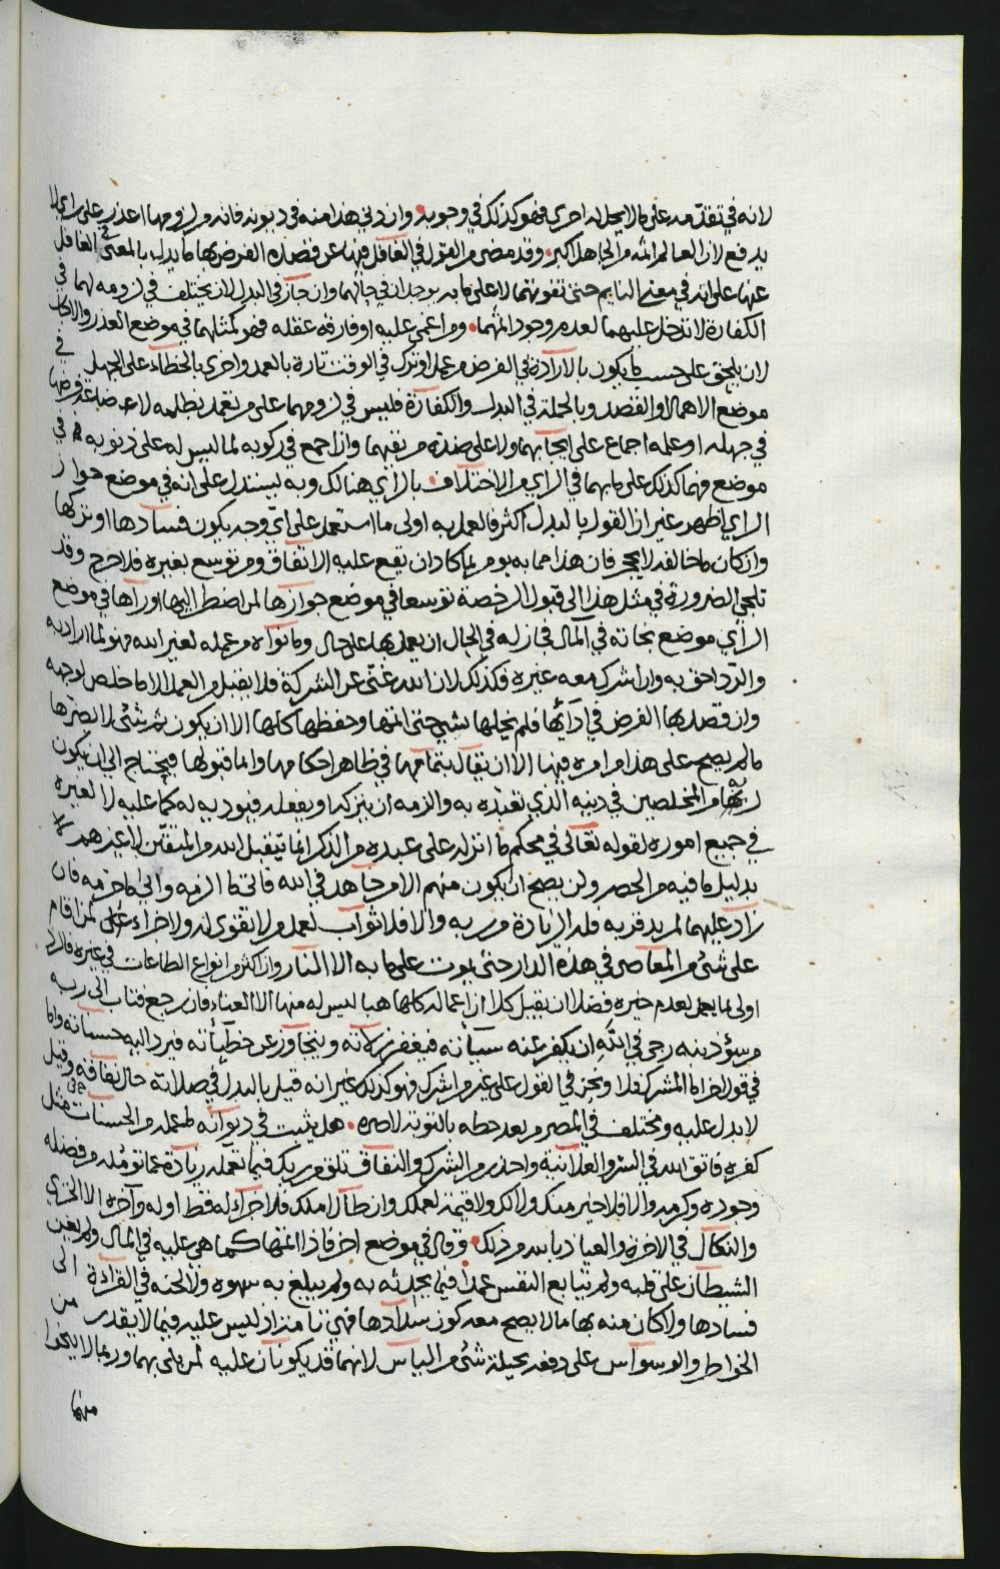 لانه في تقدمه على ما لا يحل له اخرى فهو كذلك في وجوبه وان دني هذا منه في ديونه فانه من لزومها اعذر على راي لا
يدفع لان العالم اثمه من الجاهل اكبر وقد مضى من القول في الغافل فيها عن قصده الفرض بها ما يدل بالمعنى في الغافل
عنها على انه في معنى النايم حتى تفوتهما لا على ما به يوجد ان في حالهما وان جاز في البدل لان يختلف في لزومه لهما في
الكفارة لا تدخل عليهما لعدم وجود اثمهما ومن اغمي عليه او فارقه عقله فهو كمثلهما في موضع العذر والا كان
لان يلحق على حسب ما يكون بالارادة في الفرض من عمل او ترك في الوقت تارة بالعمد واخرى بالخطاء على الجهل في
موضع الاهمال او القصد وبالجملة في البدل والكفارة فليس في لزومهما على من تعمد بظلمه لاعـ
في جهله او علمه اجماع على ايجابهما ولا على ضده من نفيهما وان اجمع في ركوبه لما ليس له على ذنوبه في
موضع فهما كذلك على ما بهما في الراي من الاختلاف بالراي هنالك وبه ليستدل على انه في موضع جواز
الراي اظهر غير ان القول بالبدل اكثر فالعمل به اولى ما استعمد على اي وجه يكون فسادها او تركها
وان كان ما خالفه لا يحجر فان هذا مما به يومر لما كاد ان تقع عليه الاتفاق ومن توسع بغيره فلا حرج وقد
تلجي الضرورة في مثل هذا الى قبول الرخصة توسعا في موضع جوازها لمن اضطر اليها او رآها في موضع
الراي موضع نجاته في المآل فجاز له في الحال ان يعمل بها على حال وما نواه من عمله لغير الله فهو لما اراد به
والرد احق به وان اشرك معه غيره فكذلك لان الله غني عن الشركة فلا يقبل من العمل الا ما خلص لوجهه
وان قصد بها الفرض في ادائها فلم يخلها بشي حتى اتمها وحفظها كلها الا ان يكون ثم شئ لا يضرها
ما لم يصح على هذا من امره فيها الا ان يقال بتمامها في ظاهر احكامها واما قبولها فيحتاج الى ان يكون
ربها من المخلصين في دينه الذي تعبده به والزمه ان يتركه او يفعله فيوديه له كما عليه لا لغيره
في جميع اموره لقوله تعالى في محكم ما انزله على عبده من الذكر انما يتقبل الله من المتقين لا غيرهم
بدليل ما فيه من الحصر ولن يصح ان يكون منهم الا من جاهد في الله فاتى ما الزمه والى ما حرمه فان
زاد عليهما لم يرد قربه فله الزيادة من ربه والا فلا ثواب لعمل من لا تقوى له ولا جزاء على لمن اقام
على شئ من المعاصي في هذه الدار حتى يموت على ما به الا النار وان اكثر من انواع الطاعات في غيره فالرد
اولى ما يعمل لعدم خيره فضلا ان يقبل كلا ان اعماله كلها هبا ليس له منها الا العناء فان رجع فتاب الى ربه
من سؤ دينه رجى في الله ان يكفر عنه سيآته فيغفر زلاته ويتجاوز عن خطيآته فيرد اليه حسناته واما
في قول اخر اما المشرك فلا ويجزي في القول على غير من اشرك فهو كذلك غير انه قيل بالبدل في صلاته حال نفاقه وقيل
لا بدل عليه ومختلف في المصر من بعد حطه بالتوبة لاصره هل يثبت في ديوانه ما عمله من الحسنات في مثل
كفره فاتق الله في السر والعلانية واحذر من الشرك والنفاق تلق من ربك فيما تعمله زيادة عما توئمله من فضله
وجوده وكرمه والا فلا خير منك ولا لك ولا قيمة لعملك وان طال املك فلا جزاء له فقط اوله وآخره الا الخزي
والنكال في الاخرة والعياذ بالله من ذلك وقال في موضع اخر فاذا اتمها كما هي عليه في المآل ولم يعن
الشيطان على قلبه ولم يتابع النفس عمدا فيما يجلئه به ولم يبلغ به سهوه ولا لحنه في القراءة الى
فسادها ولا كان منه بها ما لا يصح معه كون سدادها فهي تامة اذ ليس عليه فيما لا يقدر من
الخواطر والوسواس على دفعه بحيلة شئ من الباس لانهما قد يكونان عليه لمن بلي بهما وربما لا يخلوا
منهما